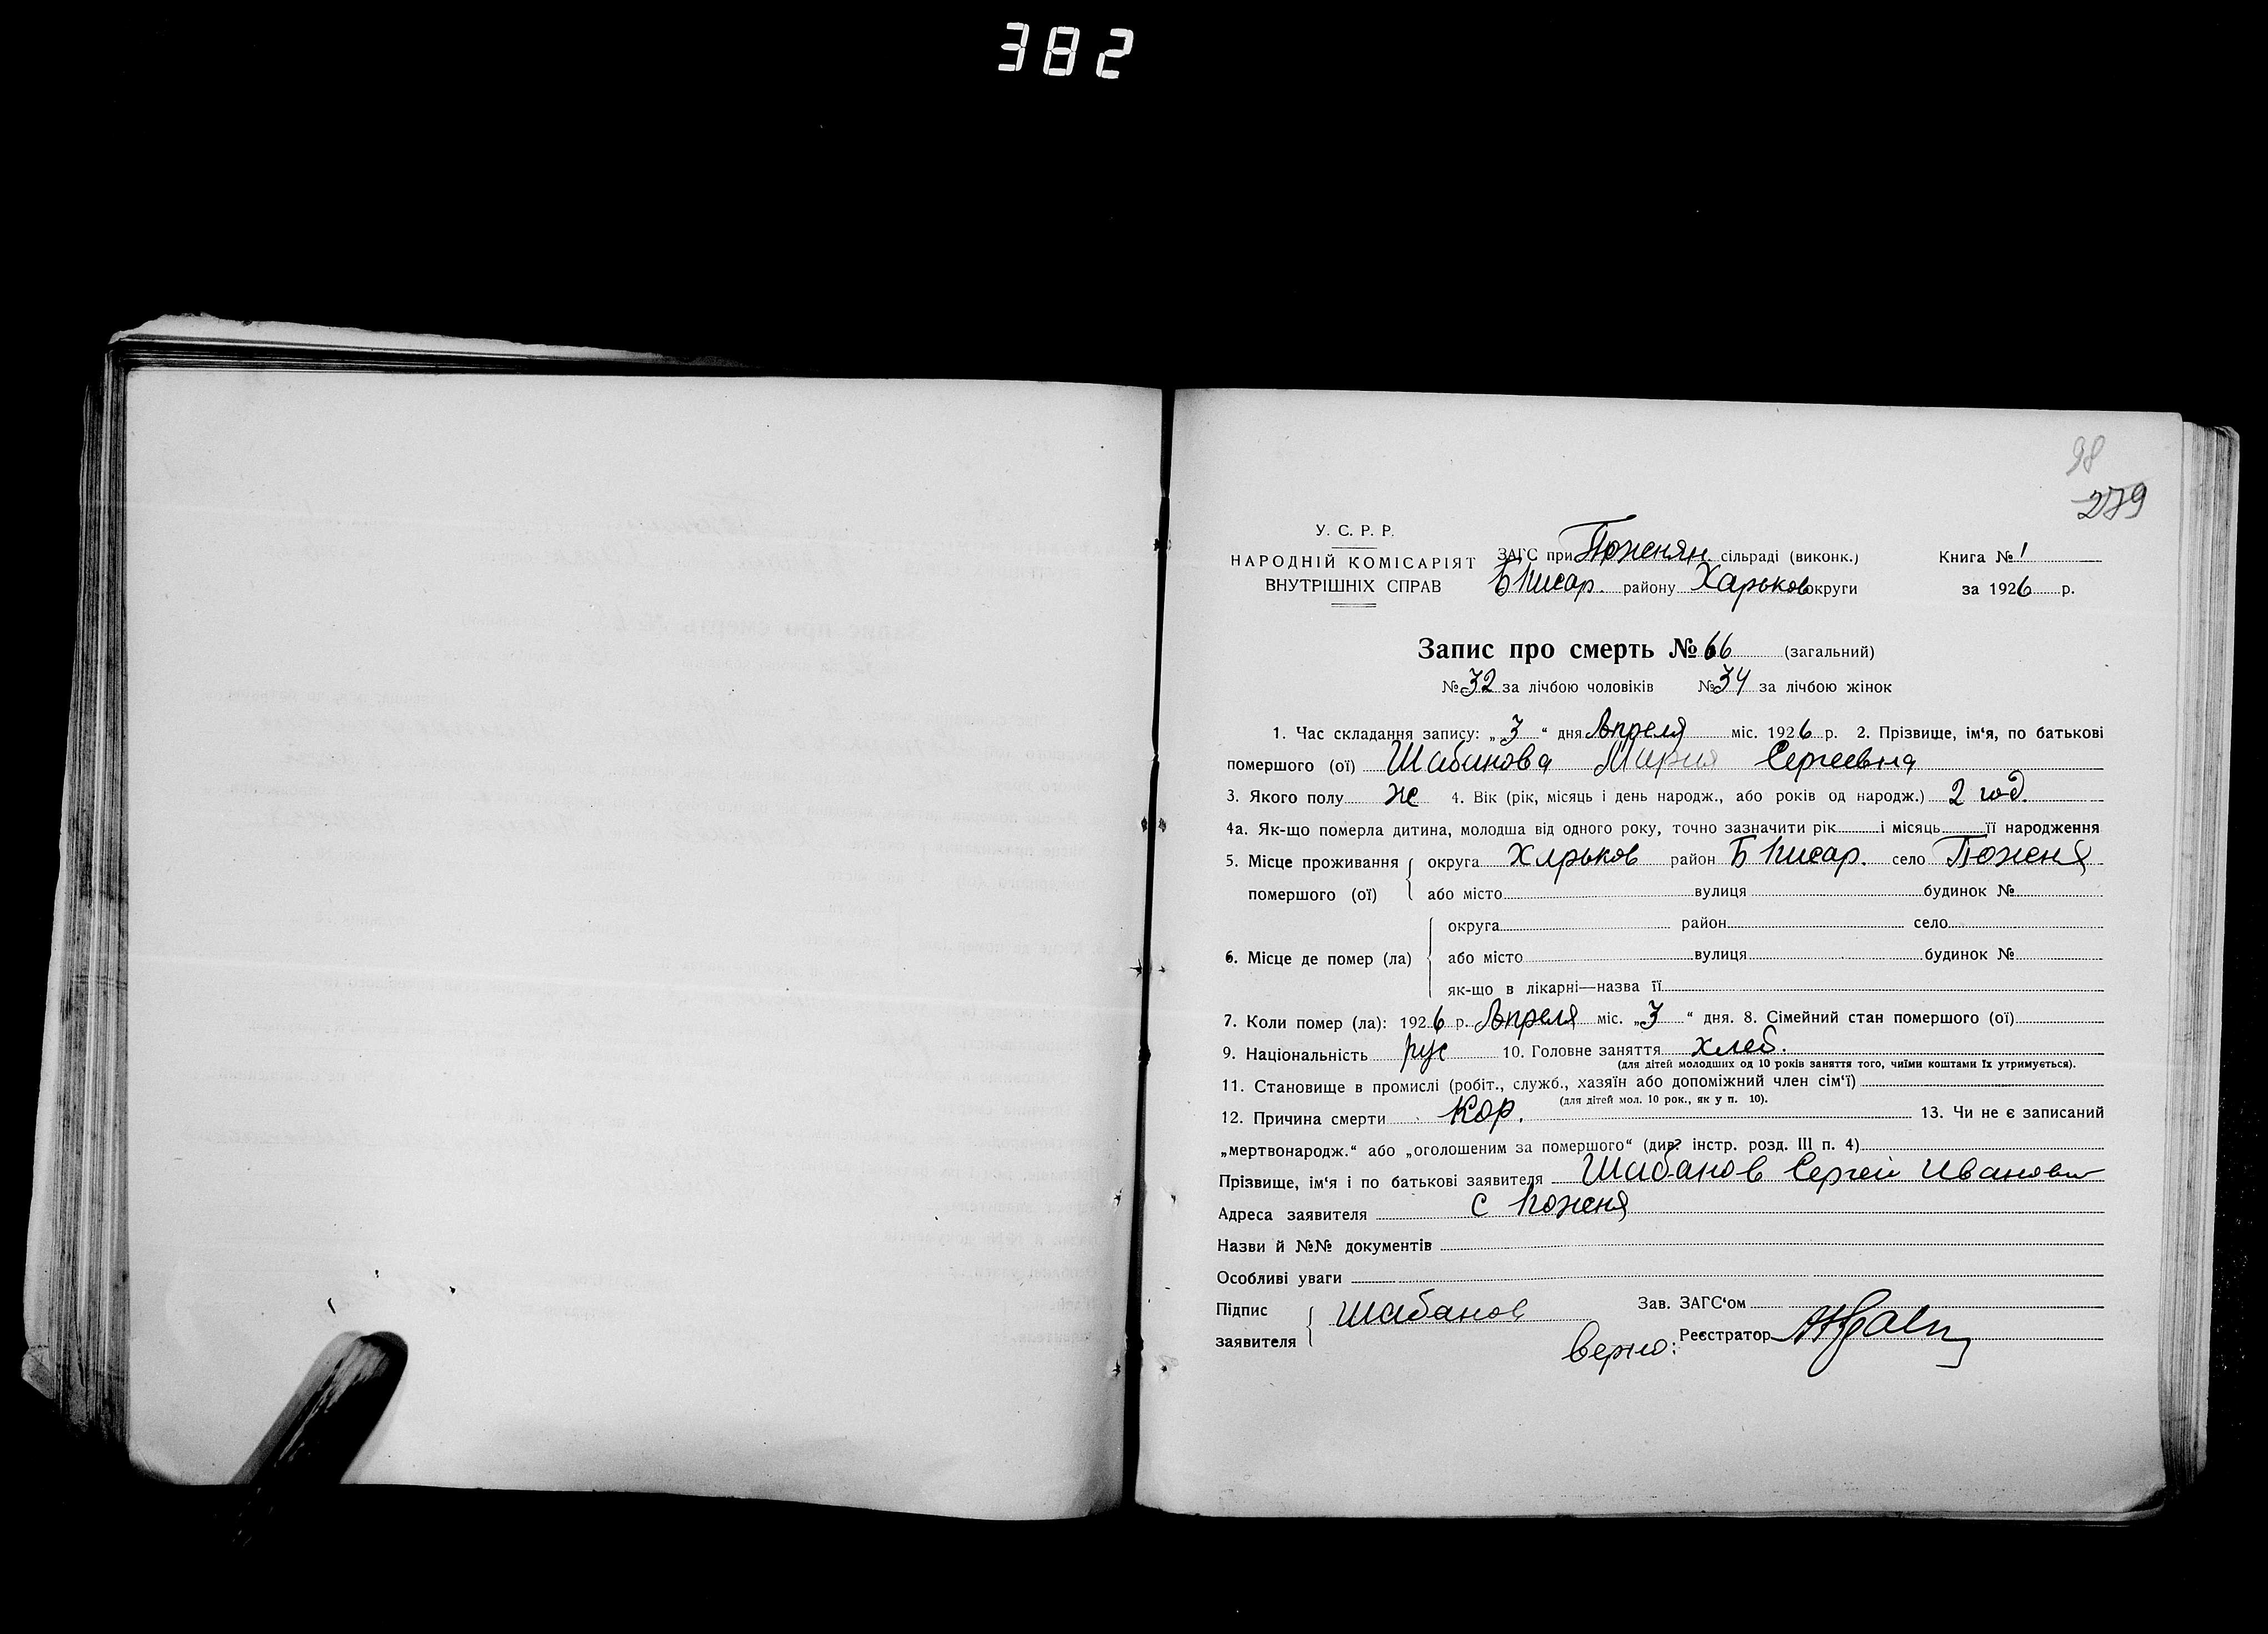 382
98
279
У. С. Р. Р.
НАРОДНІЙ КОМІСАРІЯТ
ВНУТРІШНІХ СПРАВ
ЗАГС при Поженян. сільраді (виконк.)
Б Писар. району Харьков округи
Книга № 1
за 1926 р.
Запис про смерть № 66 (загальний)
№ 32 за лічбою чоловіків № 34 за лічбою жінок
1. Час складання запису: „ 3 “ дня Апреля міс. 1926 р. 2. Прізвище, ім‘я, по батькові
помершого (ої) Шабанова Мария Сергеевна
3. Якого полу ж 4. Вік (рік, місяць і день народж., або років од народж.) 2 год.
4а. Як-що померла дитина, молодша від одного року, точно зазначити рік і місяць її народження
5. Місце проживання помершого (ої) округа Харьков район Б Писар. село Поженя
або місто вулиця будинок №
6. Місце де помер (ла) округа район село
або місто вулиця будинок №
як-що в лікарні—назва її
7. Коли помер (ла): 1926 р. Апреля міс. „ 3 “ дня. 8. Сімейний стан помершого (ої)
9. Національність рус 10. Головне заняття хлеб.
(для дітей молодших од 10 років заняття того, чиїми коштами їх утримується).
11. Становище в промислі (робіт., служб., хазяїн або допоміжний член сім‘ї)
(для дітей мол. 10 рок., як у п. 10).
12. Причина смерти Кор. 13. Чи не є записаний
„мертвонародж.“ або „оголошеним за помершого“ (див? інстр. розд. III п. 4)
Прізвище, ім‘я і по батькові заявителя Шабанов Сергей Иванович
Адреса заявителя с Поженя
Назви й №№ документів
Особливі уваги
Підпис заявителя Шабанов
Зав. ЗАГС‘ом
Верно: Реєстратор